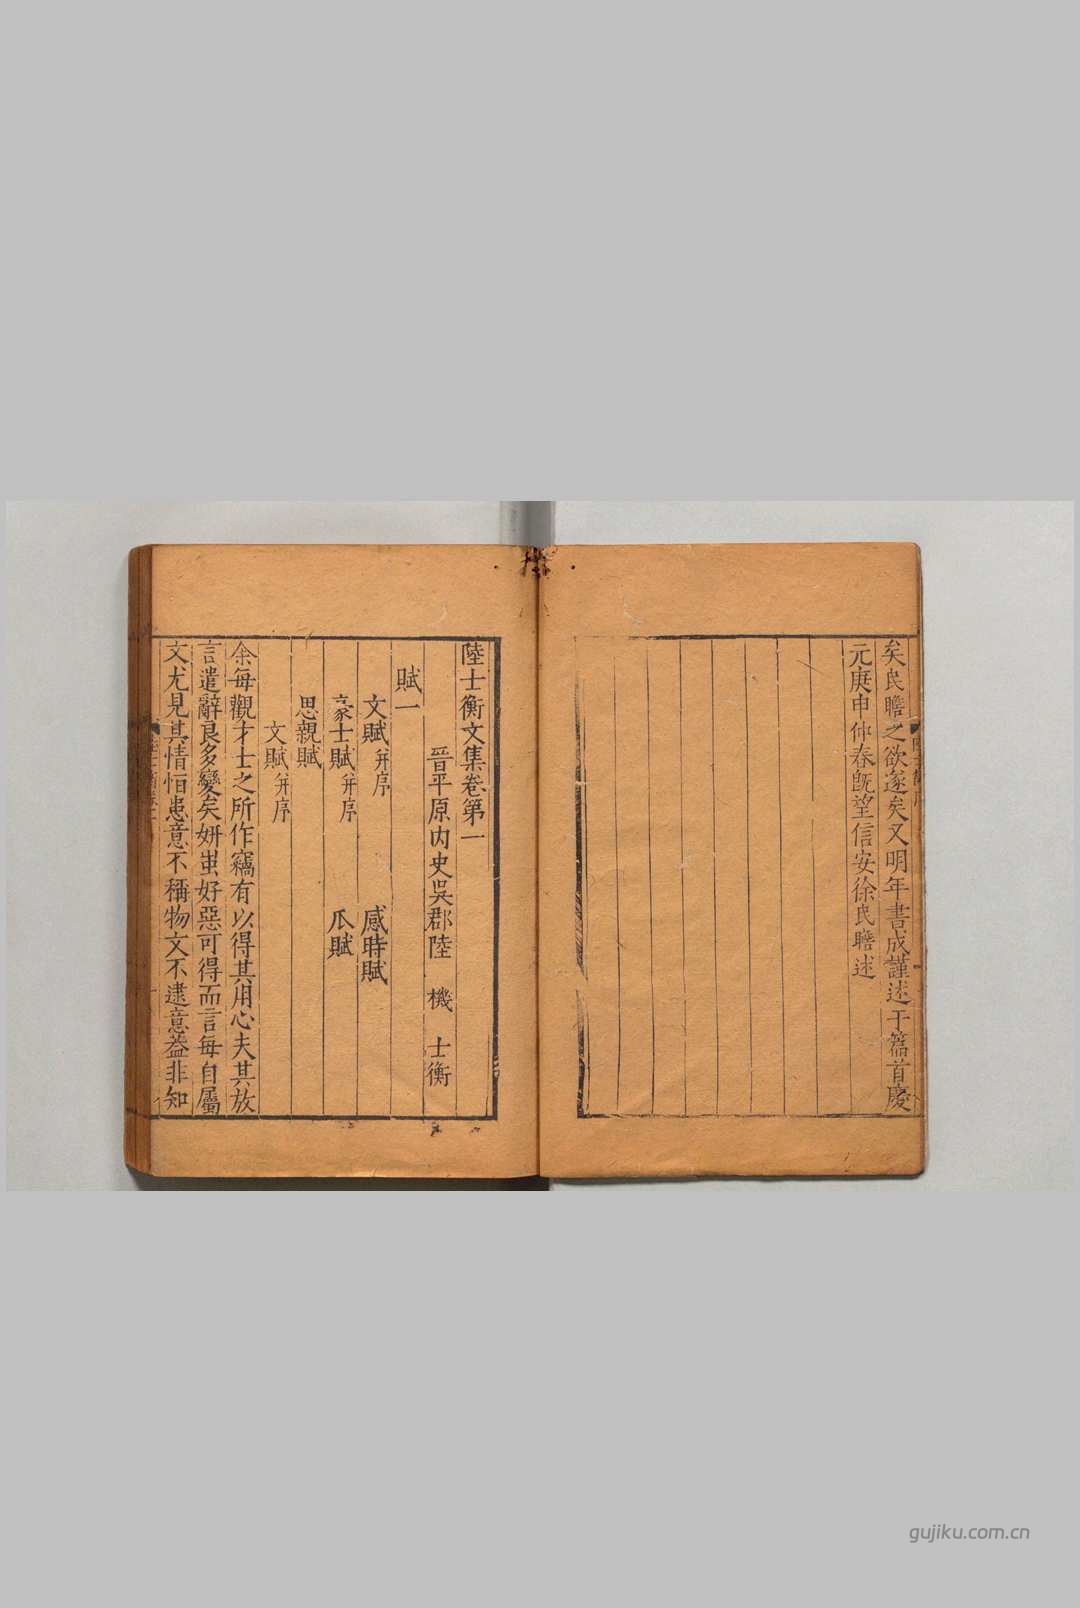 矣民瞻之欲遂矣又明年書成謹述于篇首慶
元庚申仲春既望信安徐民瞻述
陸士衡文集卷第一
晉平原內史吳郡陸機士衡
賦一
文賦并序 感時賦
豪士賦并序 瓜賦
思親賦
文賦并序
余每觀才士之所作竊有以得其用心夫其放
言遣辭良多變矣妍蚩好惡可得而言每自屬
文尤見其情恒患意不稱物文不逮意蓋非知
gujiku.com.cn